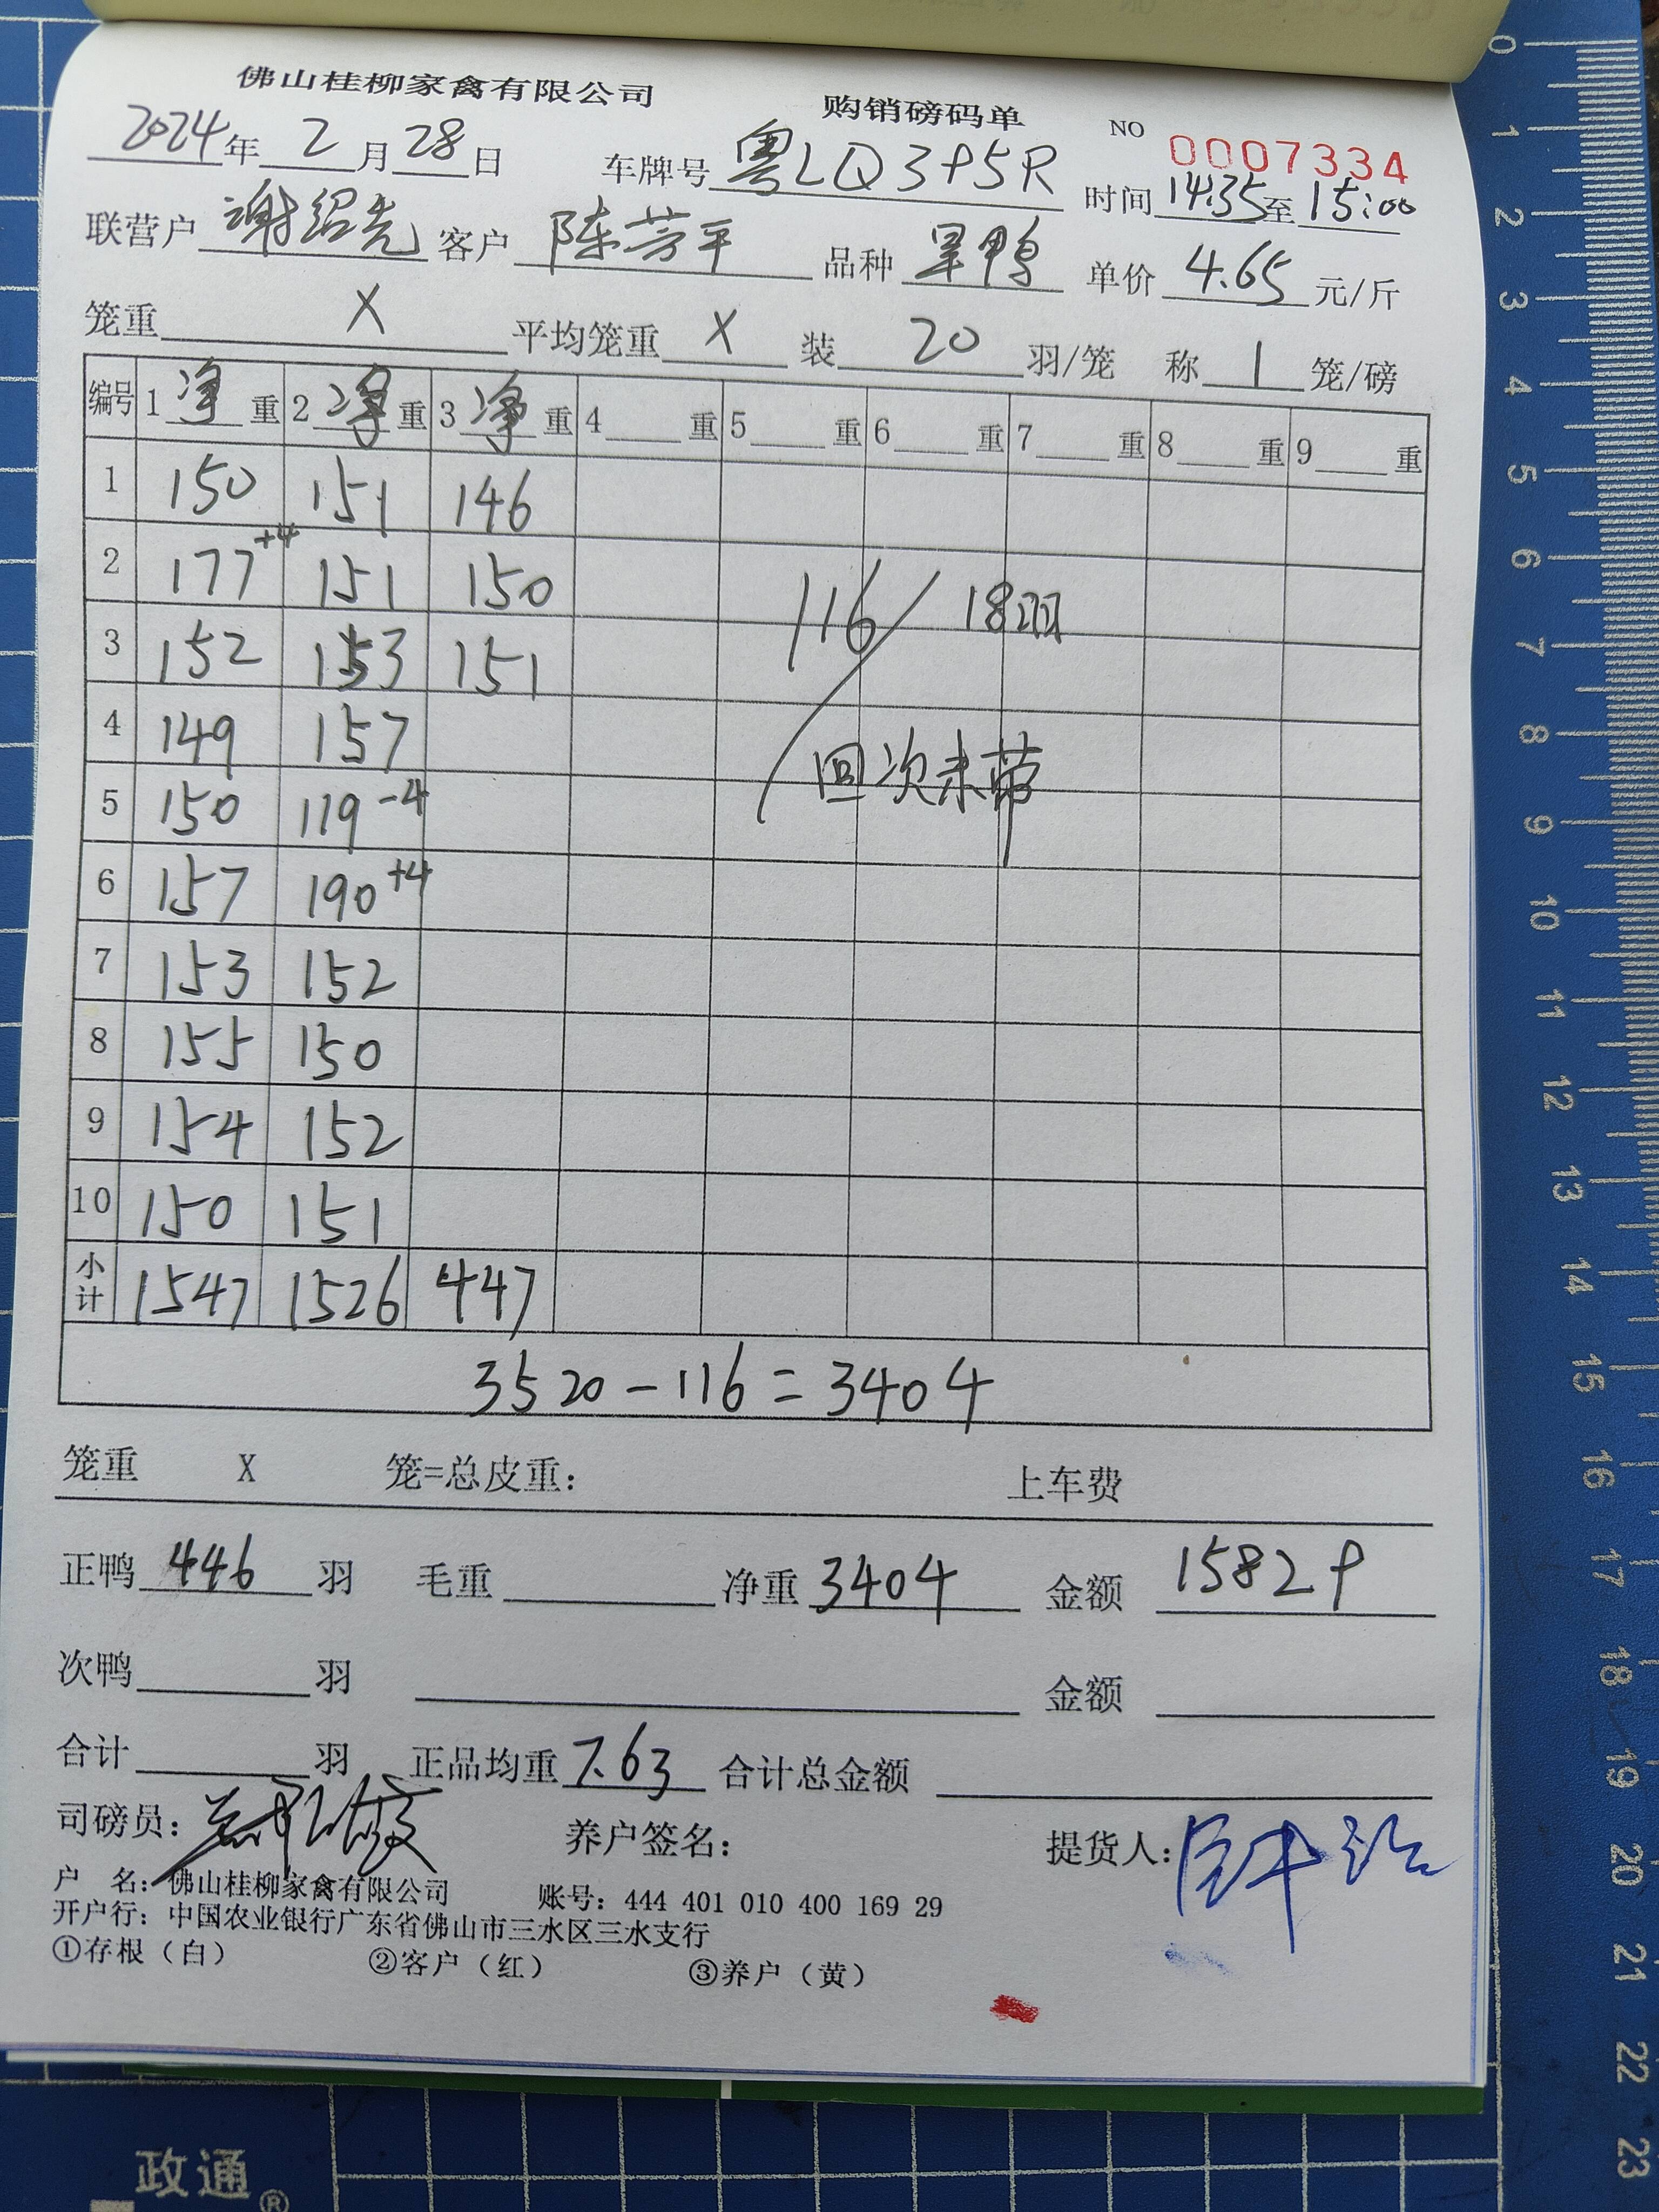 佛山桂柳家禽有限公司 购销磅码单 NO 0007334
2024年 2 月 28 日 车牌号 粤LQ3P5R 时间 14:35 至 15:00
联营户 谢绍尧 客户 陈芳平 品种 旱鸭 单价 4.65 元/斤
笼重 X 平均笼重 X 装 20 羽/笼 称 1 笼/磅
编号 1 净 重 2 净 重 3 净 重 4 重 5 重 6 重 7 重 8 重 9 重
1 150 151 146
2 177+4 151 150 116/18羽
3 152 153 151
4 149 157 回次未带
5 150 119-4
6 157 190+4
7 153 152
8 155 150
9 154 152
10 150 151
小计 1547 1526 447
3520-116=3404
笼重 X 笼=总皮重: 上车费
正鸭 446 羽 毛重 净重 3404 金额 15829
次鸭 羽 金额
合计 羽 正品均重 7.63 合计总金额
司磅员: 养户签名: 提货人:
户 名: 佛山桂柳家禽有限公司 账号: 444 401 010 400 169 29
开户行: 中国农业银行广东省佛山市三水区三水支行
①存根(白) ②客户(红) ③养户(黄)
0
1
2
3
4
5
6
7
8
9
10
11
12
13
14
15
16
17
18
19
20
21
22
23
政通®